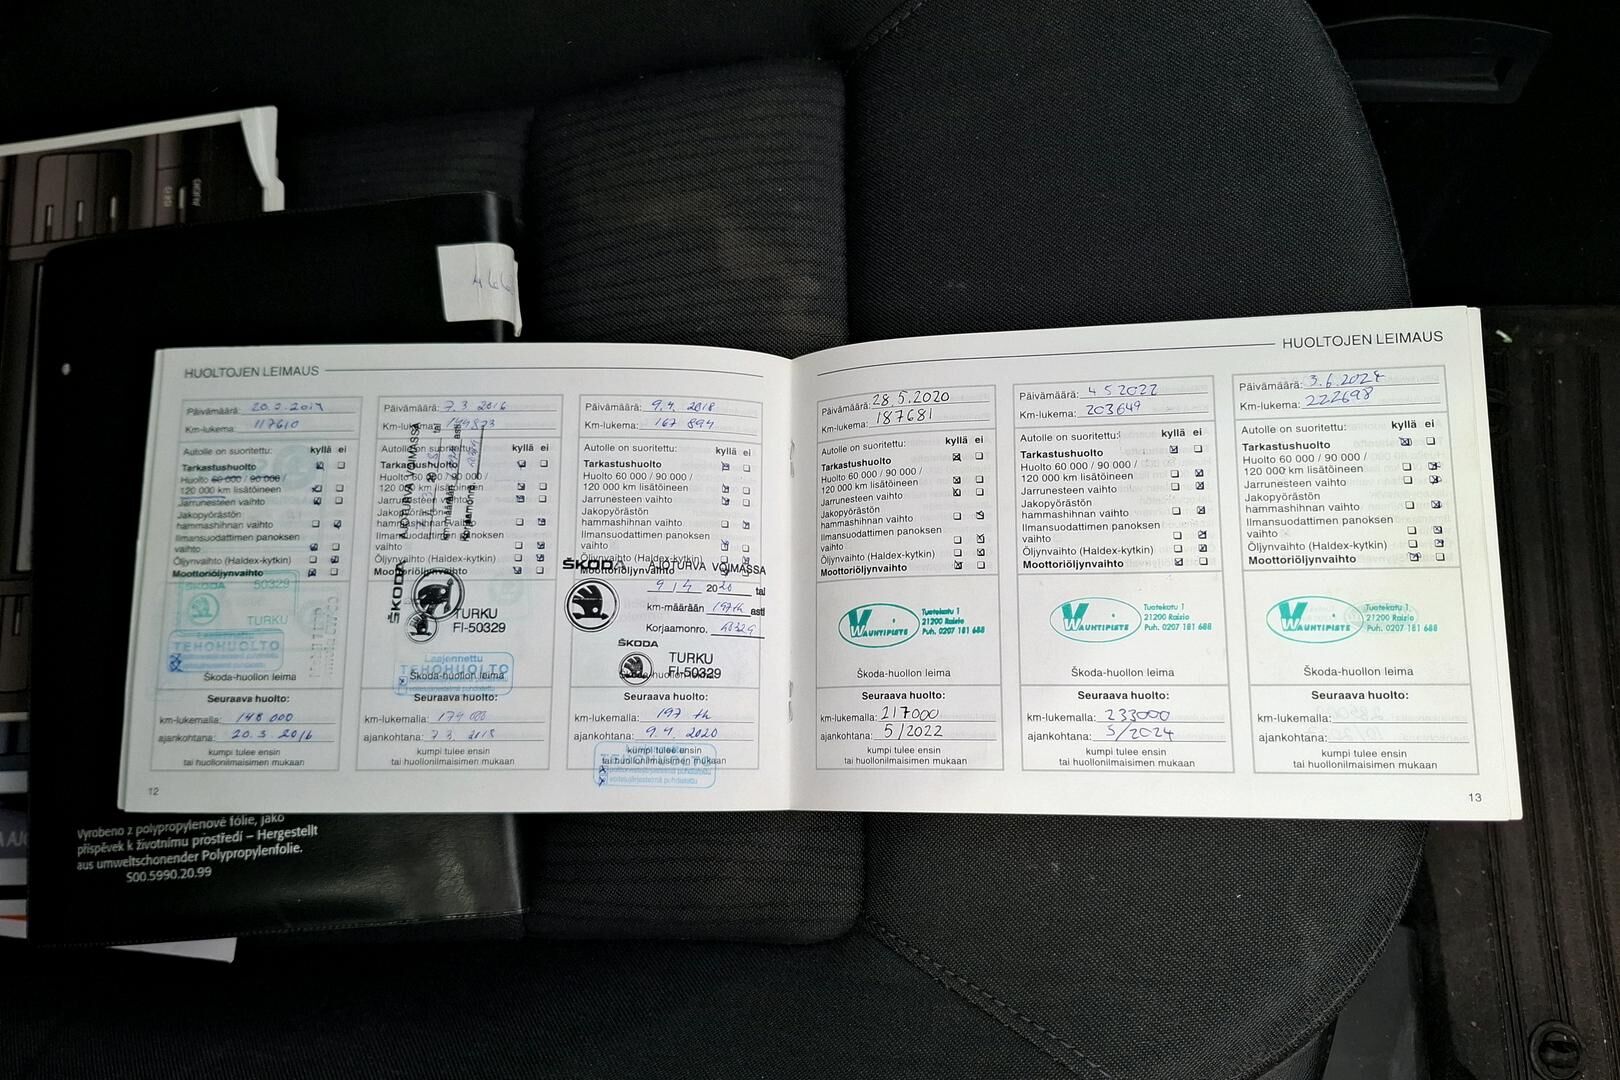 HUOLTOJEN LEIMAUS
Päivämäärä: 20.3.2014
Km-lukema: 117610
Autolle on suoritettu: kyllä ei
Tarkastushuolto
Huolto 60 000 / 90 000 /
120 000 km lisätöineen
Jarrunesteen vaihto
Jakopyörästön
hammashihnan vaihto
Ilmansuodattimen panoksen
vaihto
Öljynvaihto (Haldex-kytkin)
Moottoriöljynvaihto
ŠKODA 50329
TURKU
Laajennettu
TEHOHUOLTO
Škoda-huollon leima
Seuraava huolto:
km-lukemalla: 148 000
ajankohtana: 20.3.2016
kumpi tulee ensin
tai huollonilmaisimen mukaan
12
Päivämäärä: 7.3.2016
Km-lukema: 149823
Autolle on suoritettu: kyllä ei
Tarkastushuolto
Huolto 60 000 / 90 000 /
120 000 km lisätöineen
Jarrunesteen vaihto
Jakopyörästön
hammashihnan vaihto
Ilmansuodattimen panoksen
vaihto
Öljynvaihto (Haldex-kytkin)
Moottoriöljynvaihto
AJOTURVA VOIMASSA
km-määrään
Korjaamonro.
ŠKODA
TURKU
FI-50329
Laajennettu
TEHOHUOLTO
Škoda-huollon leima
Seuraava huolto:
km-lukemalla: 179 000
ajankohtana: 7.3.2018
kumpi tulee ensin
tai huollonilmaisimen mukaan
Päivämäärä: 9.4.2018
Km-lukema: 167 894
Autolle on suoritettu: kyllä ei
Tarkastushuolto
Huolto 60 000 / 90 000 /
120 000 km lisätöineen
Jarrunesteen vaihto
Jakopyörästön
hammashihnan vaihto
Ilmansuodattimen panoksen
vaihto
Öljynvaihto (Haldex-kytkin)
Moottoriöljynvaihto
ŠKODA AJOTURVA VOIMASSA
9/4 2020 tai
km-määrään 197th asti
Korjaamonro. 50329
ŠKODA
TURKU
FI-50329
Škoda-huollon leima
Seuraava huolto:
km-lukemalla: 197 th
ajankohtana: 9.4.2020
kumpi tulee ensin
tai huollonilmaisimen mukaan
HUOLTOJEN LEIMAUS
Päivämäärä: 28.5.2020
Km-lukema: 187681
Autolle on suoritettu: kyllä ei
Tarkastushuolto
Huolto 60 000 / 90 000 /
120 000 km lisätöineen
Jarrunesteen vaihto
Jakopyörästön
hammashihnan vaihto
Ilmansuodattimen panoksen
vaihto
Öljynvaihto (Haldex-kytkin)
Moottoriöljynvaihto
WAUNTIPISTE
Tuotekatu 1
21200 Raisio
Puh. 0207 181 688
Škoda-huollon leima
Seuraava huolto:
km-lukemalla: 217000
ajankohtana: 5/2022
kumpi tulee ensin
tai huollonilmaisimen mukaan
Päivämäärä: 4.5.2022
Km-lukema: 203649
Autolle on suoritettu: kyllä ei
Tarkastushuolto
Huolto 60 000 / 90 000 /
120 000 km lisätöineen
Jarrunesteen vaihto
Jakopyörästön
hammashihnan vaihto
Ilmansuodattimen panoksen
vaihto
Öljynvaihto (Haldex-kytkin)
Moottoriöljynvaihto
WAUNTIPISTE
Tuotekatu 1
21200 Raisio
Puh. 0207 181 688
Škoda-huollon leima
Seuraava huolto:
km-lukemalla: 233000
ajankohtana: 5/2024
kumpi tulee ensin
tai huollonilmaisimen mukaan
Päivämäärä: 3.6.2024
Km-lukema: 222698
Autolle on suoritettu: kyllä ei
Tarkastushuolto
Huolto 60 000 / 90 000 /
120 000 km lisätöineen
Jarrunesteen vaihto
Jakopyörästön
hammashihnan vaihto
Ilmansuodattimen panoksen
vaihto
Öljynvaihto (Haldex-kytkin)
Moottoriöljynvaihto
WAUNTIPISTE
Tuotekatu 1
21200 Raisio
Puh. 0207 181 688
Škoda-huollon leima
Seuraava huolto:
km-lukemalla:
ajankohtana:
kumpi tulee ensin
tai huollonilmaisimen mukaan
13
Vyrobeno z polypropylenové fólie, jako
příspěvek k životnímu prostředí – Hergestellt
aus umweltschonender Polypropylenfolie.
S00.5990.20.99